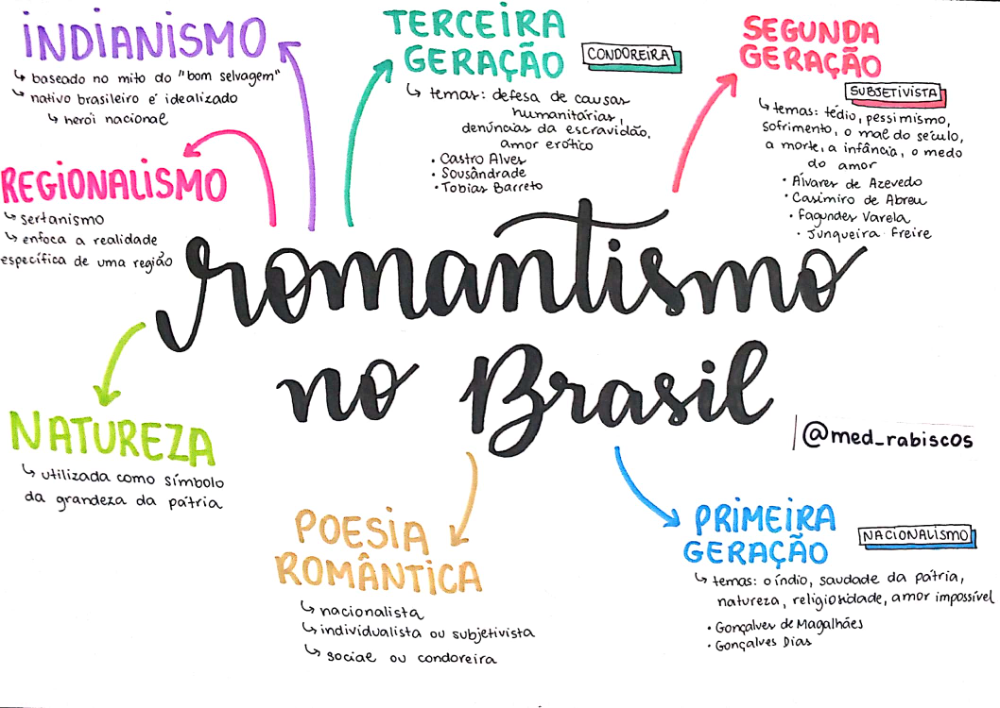 INDIANISMO
↳ baseado no mito do "bom selvagem"
↳ nativo brasileiro é idealizado
↳ herói nacional
TERCEIRA
GERAÇÃO
CONDOREIRA
↳ temas: defesa de causas
humanitárias,
denúncias da escravidão,
amor erótico
• Castro Alves
• Sousândrade
• Tobias Barreto
SEGUNDA
GERAÇÃO
SUBJETIVISTA
↳ temas: tédio, pessimismo,
sofrimento, o mal do século,
a morte, a infância, o medo
do amor
• Álvares de Azevedo
• Casimiro de Abreu
• Fagundes Varela
• Junqueira Freire
REGIONALISMO
↳ sertanismo
↳ enfoca a realidade
específica de uma região
romantismo
no Brasil
@med_rabiscos
NATUREZA
↳ utilizada como símbolo
da grandeza da pátria
POESIA
ROMÂNTICA
↳ nacionalista
↳ individualista ou subjetivista
↳ social ou condoreira
PRIMEIRA
GERAÇÃO
NACIONALISMO
↳ temas: o índio, saudade da pátria,
natureza, religiosidade, amor impossível
• Gonçalves de Magalhães
• Gonçalves Dias